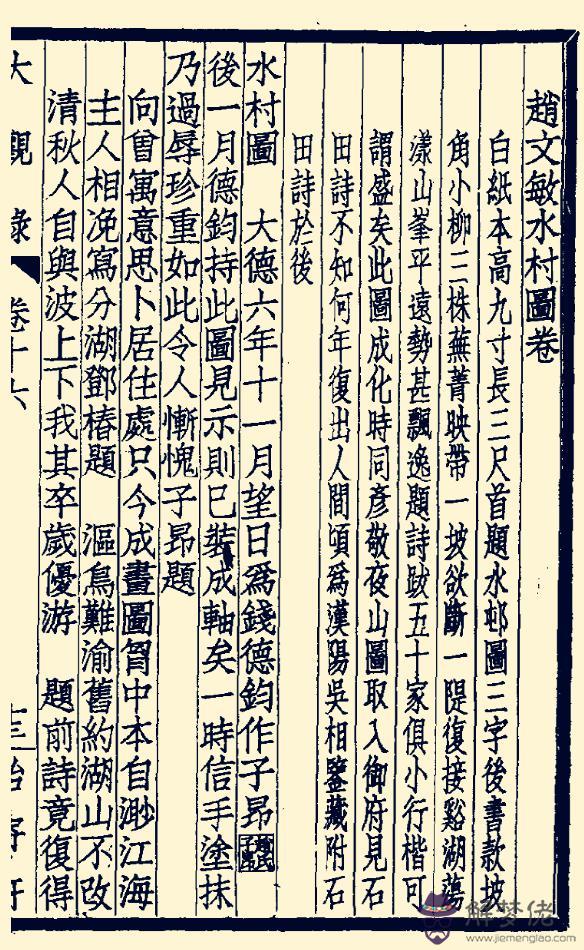 趙文敏水村圖卷
白紙本高九寸長三尺首題水邨圖三字後書款坡
角小柳三株蕪菁映帶一坡欲斷一隄復接谿湖蕩
漾山峯平遠勢甚飄逸題詩跋五十家俱小行楷可
謂盛矣此圖成化時同彥敬夜山圖取入御府見石
田詩不知何年復出人間頃爲漢陽吳相鑒藏附石
田詩於後
水村圖　大德六年十一月望日爲錢德鈞作子昂
後一月德鈞持此圖見示則已裝成軸矣一時信手塗抹
乃過辱珍重如此令人慚愧子昂題
向曾寓意思卜居住處只今成畫圖胷中本自渺江海
主人相況寫分湖鄧椿題　漚鳥難渝舊約湖山不改
清秋人自與波上下我其卒歲優游　題前詩竟復得
大觀錄　卷十六
解梦佬
www.jiemenglao.com